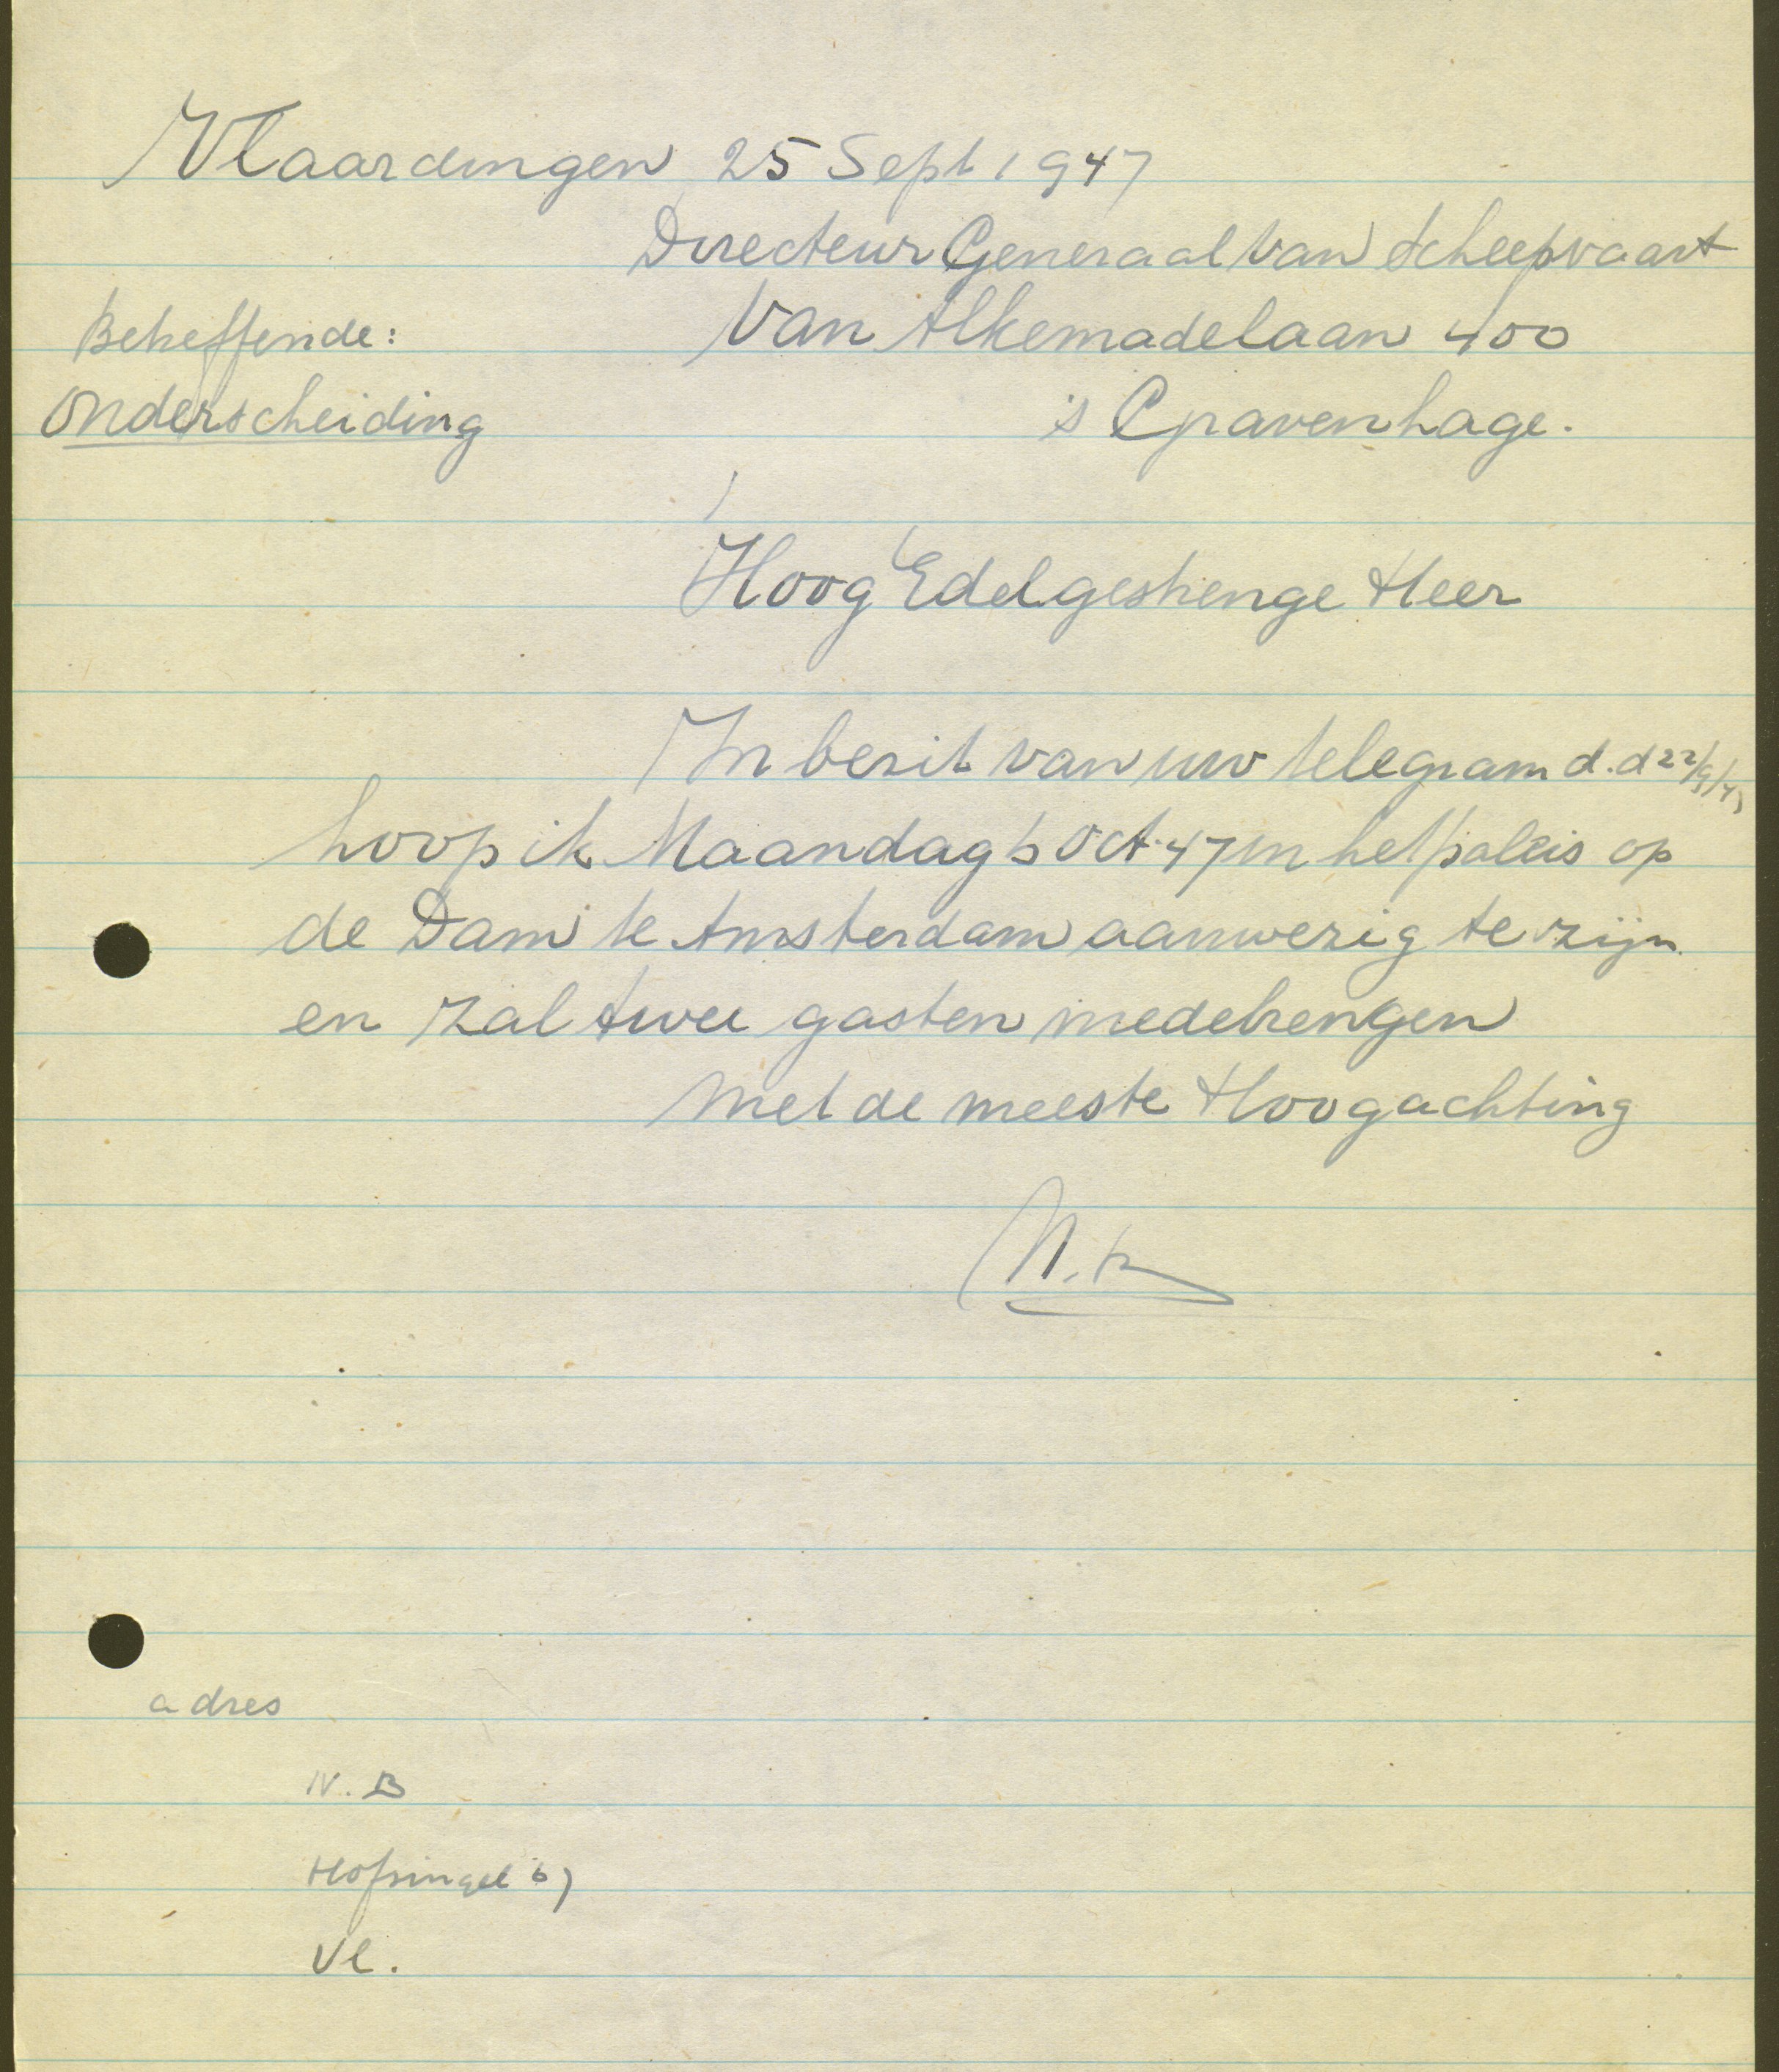 Vlaardingen 25 Sept 1947
Directeur Generaal van Scheepvaart
Van Alkemadelaan 400
Betreffende:
Onderscheiding
's Gravenhage.
Hoog Edelgestrenge Heer
In bezit van uw telegram d.d 22/9/47
hoop ik Maandag 6 Oct. 47 in het paleis op
de Dam te Amsterdam aanwezig te zijn
en zal twee gasten medebrengen
Met de meeste Hoogachting
adres
N. B
Hofsingel 67
Vl.